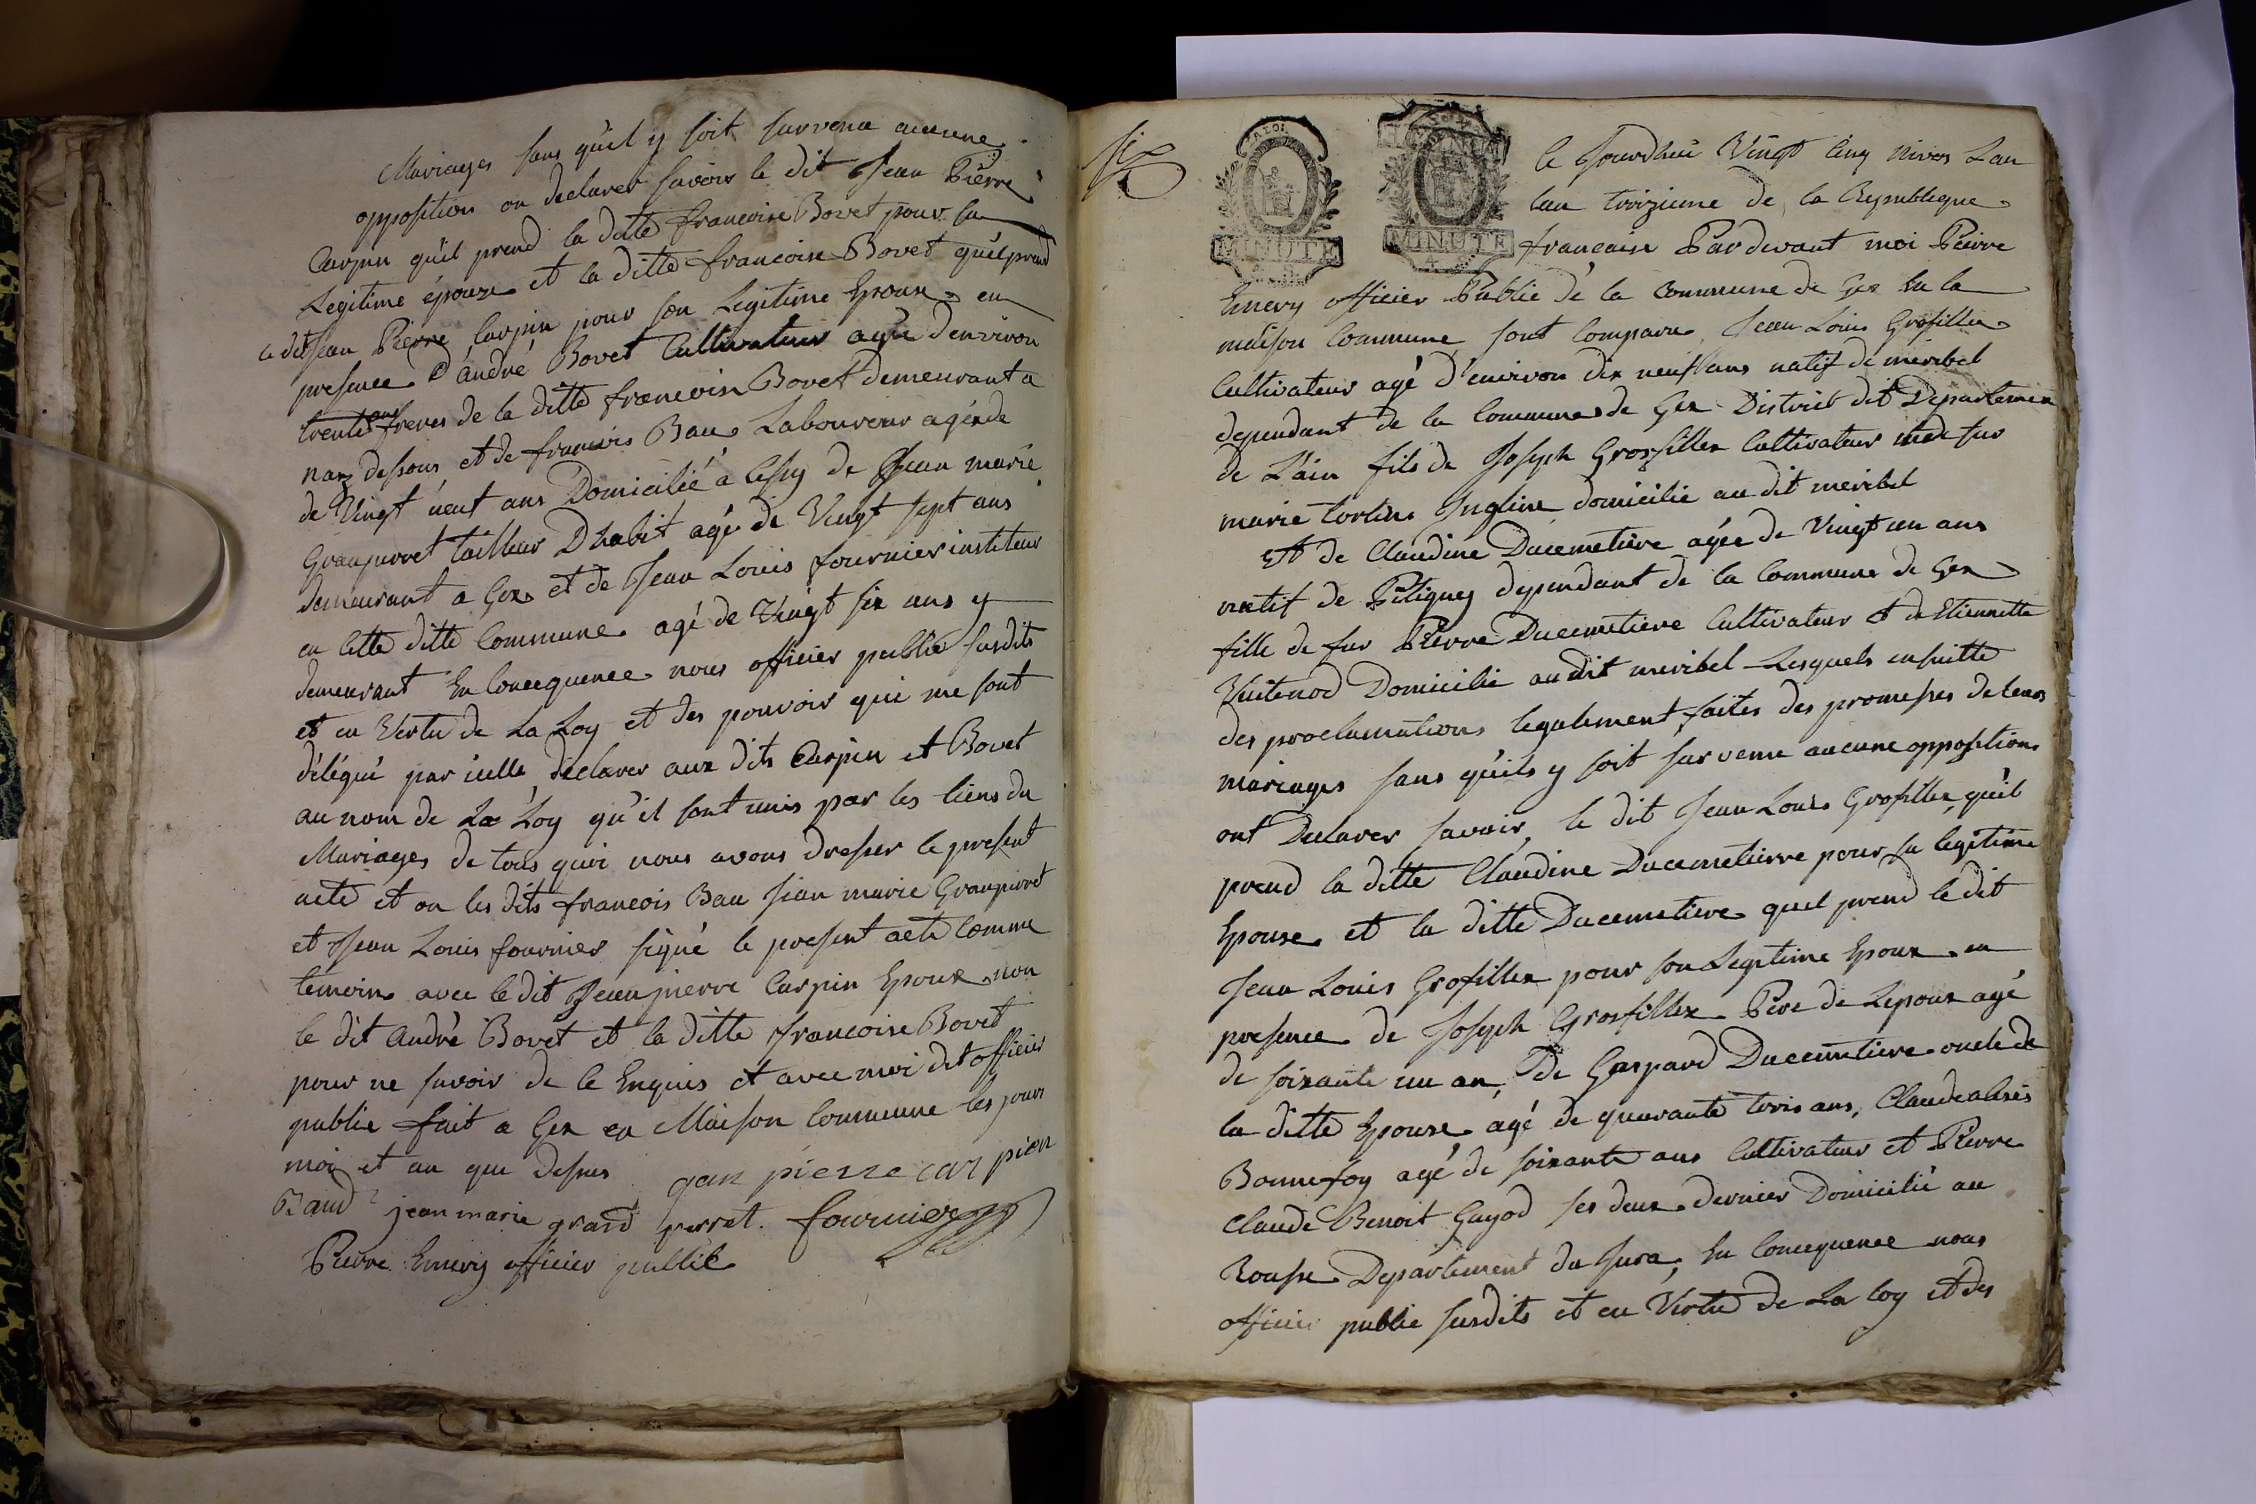 Mariages sans qu'il y soit survenu aucune
opposition on declarer savoir le dit Jean Pierre
Carpin qu'il prend la ditte francoise Bovet pour sa
Legitime épouze et la ditte francoise Bovet qu'el prend
le dit Jean Pierre Carpin pour son Legitime Epoux en
presence d'andré Bovet Cultivateur agé d'environ
trente ans freres de la ditte francoise Bovet demeurant a
naz dessous et de francois Bau Laboureur agé de
de Vingt neuf ans Domicilié a Cessy de Jean marie
Granperret tailleur D'habit agé de Vingt sept ans
demeurant a Gex et de Jean Louis fournier instituteur
en cette ditte Commune agé de Vingt six ans y
demeurant En Concequence nous officier public susdits
et en Vertu de La Loy et des pouvoir qui me sont
délégué par icelle declarer aux dits Carpin et Bovet
au nom de La Loy qu'il sont unis par les liens du
Mariages de tous quoi nous avons dresser le present
acte et on les dits francois Bau Jean marie Granperret
et Jean Louis fournier signé le present acte comme
temoins avec le dit Jean pierre Carpin Epoux non
le dit André Bovet et la ditte francoise Bovet
pour ne savoir de ce Enquis et avec moi dit officier
public fait a Gex en Maison Commune les jour
moi et an que dessus gan pierre carpien
Baud jean marie grand perret. fournier
Pierre Emery officier public
six
MINUTE
MINUTE
Ce Jourdhui Vingt Cinq nivos Lan
lan troizieme de la Republique
francaise Pardevant moi Pierre
Emery officier Public de la Commune de Gex En la
maison Commune sont Comparu Jean Louis Grosfillex
Cultivateur agé d'environ dix neuf ans natif de miribel
dependant de la Commune de Gex District dit Departemen
de L'ain fils de Joseph Grosfillex Cultivateur et de fue
marie domicilie au dit meribel
Et de Claudine Ducemetiere agée de Vingt un ans
natif de Pitigney dependant de la Commune de Gex
fille de fue Pierre Ducemetiere Cultivateur et de Etiennette
Vuitenod Domicilie au dit meribel Lesquels ensuitte
des proclamations legalement faites des promesses de leurs
mariages sans qu'ils y soit survenu aucune opposition
ont Declarer savoir, le dit Jean Louis Grosfillex qu'il
prend la ditte Claudine Ducemetierre pour sa légitime
Epouse et la ditte Ducemetiere quel prend le dit
Jean Louis Grosfillex pour son Legitime Epoux en
presence de Joseph Grosfillex Pere de Lepoux agé
de soixante un an, de Gaspard Ducemetiere oncle de
la ditte Epouse agé de quarante trois ans, Claude alexis
Bonnefoy agé de soixante ans Cultivateur et Pierre
Claude Benoit Guyod ses deux dernier Domicilié au
Rousse Departement du Jura, En Concequence nous
officier public susdits et en Vertu de La loy et des